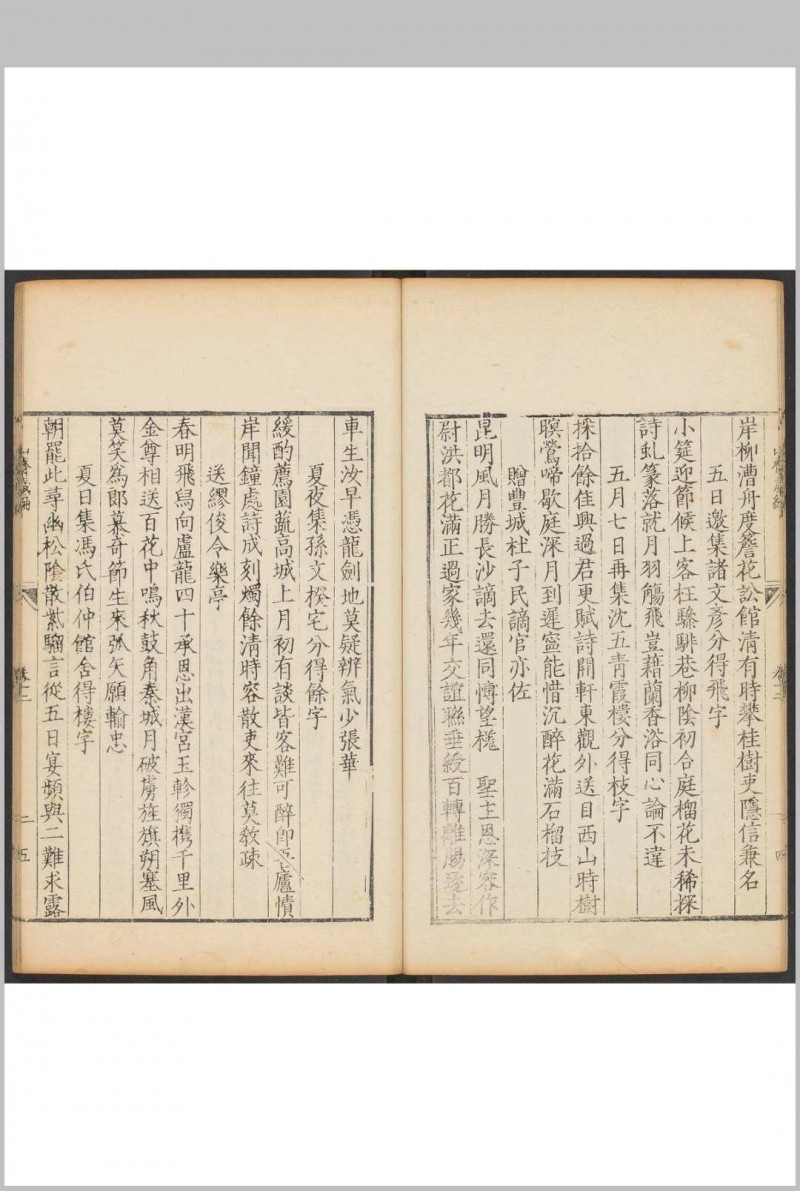 岸柳漕舟度簷花訟館清有時攀桂樹吏隱信兼名
五日邀集諸文彥分得飛字
小筵迎節候上客枉驂騑巷柳陰初合庭榴花未稀探
詩虬篆落就月羽觴飛豈藉蘭香浴同心論不違
五月七日再集沈五青霞樓分得枝字
採拾餘佳興過君更賦詩開軒東觀外送目西山時樹
暝鶯啼歇庭深月到遲寧能惜沉醉花滿石榴枝
贈豐城杜子民謫官亦佐
昆明風月勝長沙謫去還同愽望槎 聖主恩深容作
尉洪都花滿正過家幾年交誼聯垂綬百轉離腸逐去
車生汝早憑龍劍地莫疑辨氣少張華
夏夜集孫文揆宅分得餘字
緩酌薦園蔬高城上月初有談皆客難可醉即吾廬憤
岸聞鐘處詩成刻燭餘清時容散吏來往莫教疎
送繆俊令樂亭
春明飛舄向盧龍四十承恩出漢宮玉軫獨攜千里外
金尊相送百花中鳴秋鼓角秦城月破虜旌旗朔塞風
莫笑爲郎慕奇節生來弧矢願輸忠
夏日集馮氏伯仲館舍得樓字
朝罷此尋幽松陰散紫騮言從五日宴頻與二難求露
卷十二
二五